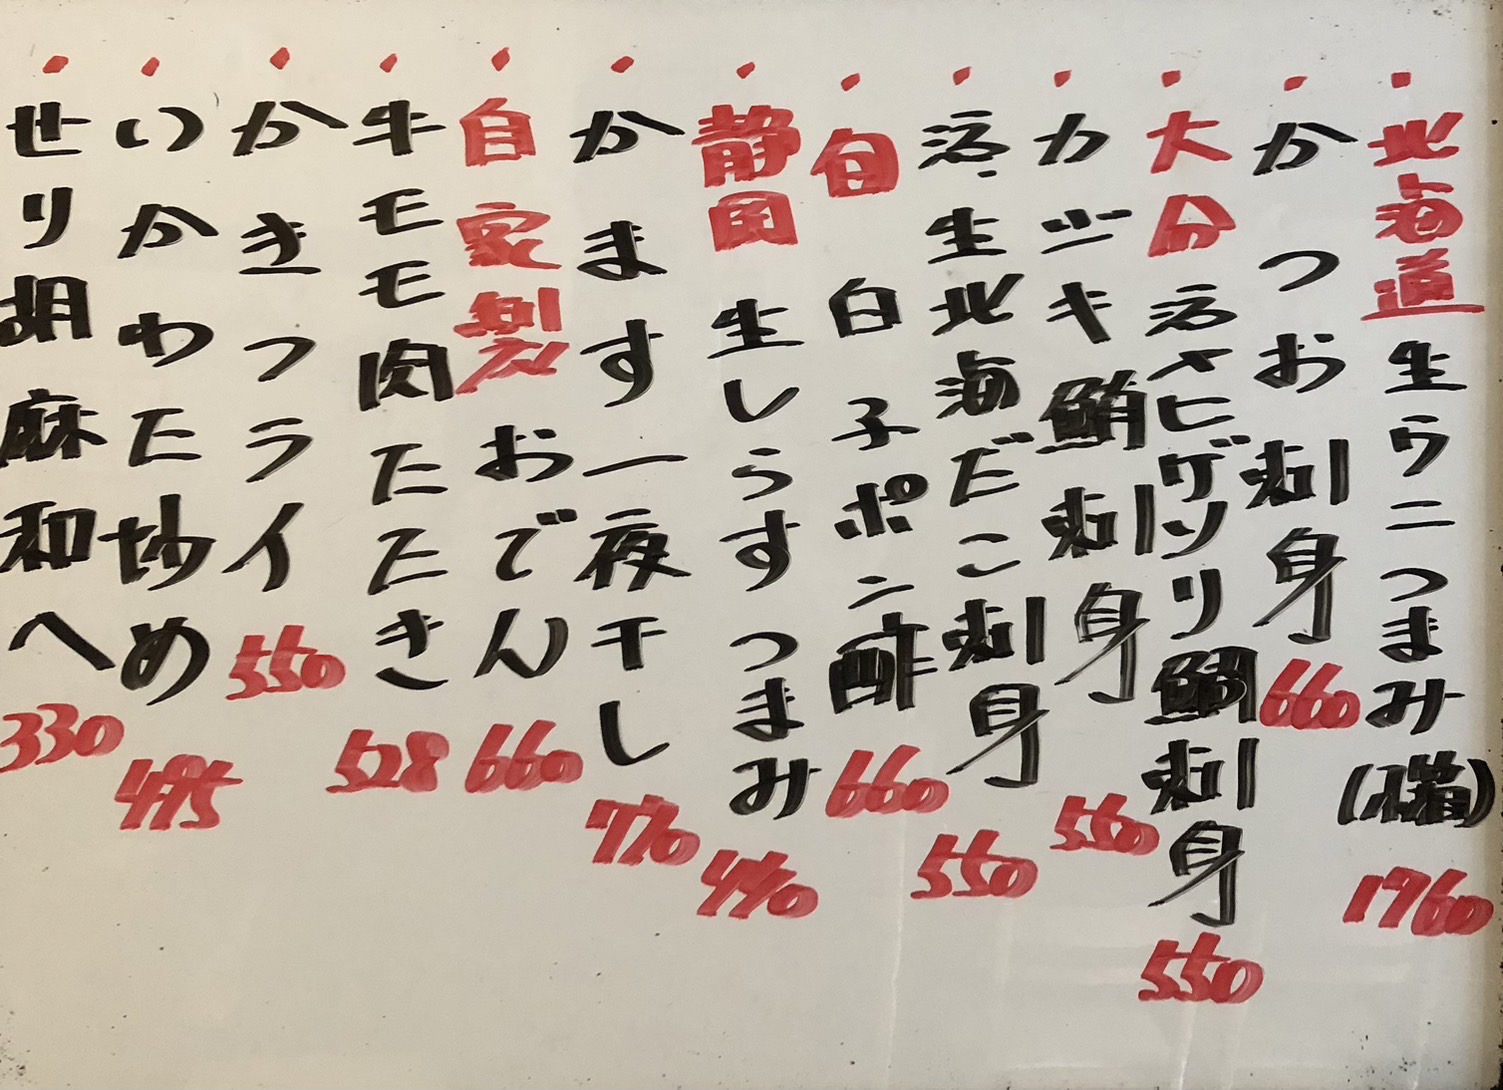 ・北海道生ウニつまみ 1760
・かつお刺身 660
・大分活〆ヒゲソリ鯛刺身 550
・カジキ鮪刺身 560
・活、生北海だこ刺身 550
・旬 白子ポン酢 660
・静岡 生しらすつまみ 440
・かます一夜干し 770
・自家製 おでん 660
・牛モモ肉たたき 528
・かきフライ 550
・いかわた炒め 495
・せり胡麻和へ 330